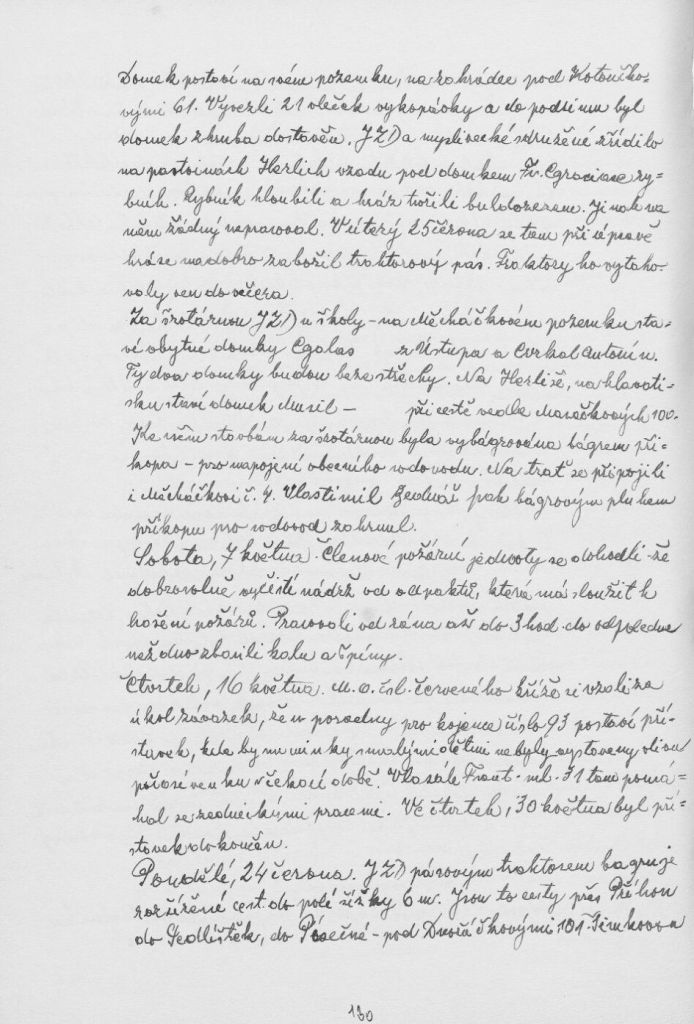 Domek postaví na svém pozemku, na zahrádce pod Kotoučko-
vými 61. Vyvezli 21 vleček vykopávky a do podzimu byl
domek zhruba dostavěn. JZD a myslivecké sdružené zřídilo
na pastvinách Herlich vzadu pod domkem Fr. rý-
bník. Rybník hloubili a hráz tvořili buldozerem. Jinak na
něm žádný nepracoval. V úterý 25 června se tam při úpravě
hráze nadobro zabořil traktorový pás. Traktory ho vytaho-
valy ven do večera.
Za šrotárnou JZD u školy - na Měcháčkovém pozemku sta-
ví obytné domky Cgolas z Ústupa a Cvrkal Antonín.
Ty dva domky budou beze střechy. Na Herliše, na hlavati-
sku staví domek Musil - při cestě vedle 100.
Ke všem stavbám za šrotárnou byla vybágrována bágrem pří-
kopa - pro napojení obecního vodovodu. Na trať se připojili
i Měcháčkovi č. 4. Vlastimil Bednář pak bágrovým pluhem
příkopu pro vodovod zahrnul.
Sobota, 7 května. Členové požární jednoty se dohodli že
dobrovolně vyčistí nádrž od odpaků, která má sloužit k
hašení požárů. Pracovali od rána až do 3 hod. do odpoledne
než dno zbavili kalu a špíny.
Čtvrtek, 16 května. M. o. čsl. červeného kříže si vzali za
úkol závazek, že u poradny pro kojence číslo 93 postaví pří-
stavek, kde by maminky s malými dětmi nebyly vystaveny vlivu
počasí venku v čekací době. Vlasák Frant. ml. 31 tam pomá-
hal se zednickými pracemi. Ve čtvrtek, 30 května byl pří-
stavek dokončen.
Pondělí, 24 června. JZD pásovým traktorem bagruje
rozšířené cest do polí šířky 6 m. Jsou to cesty přes Příhon
do Sedlištěk, do Písečné - pod Dvořáčkovými 101
130